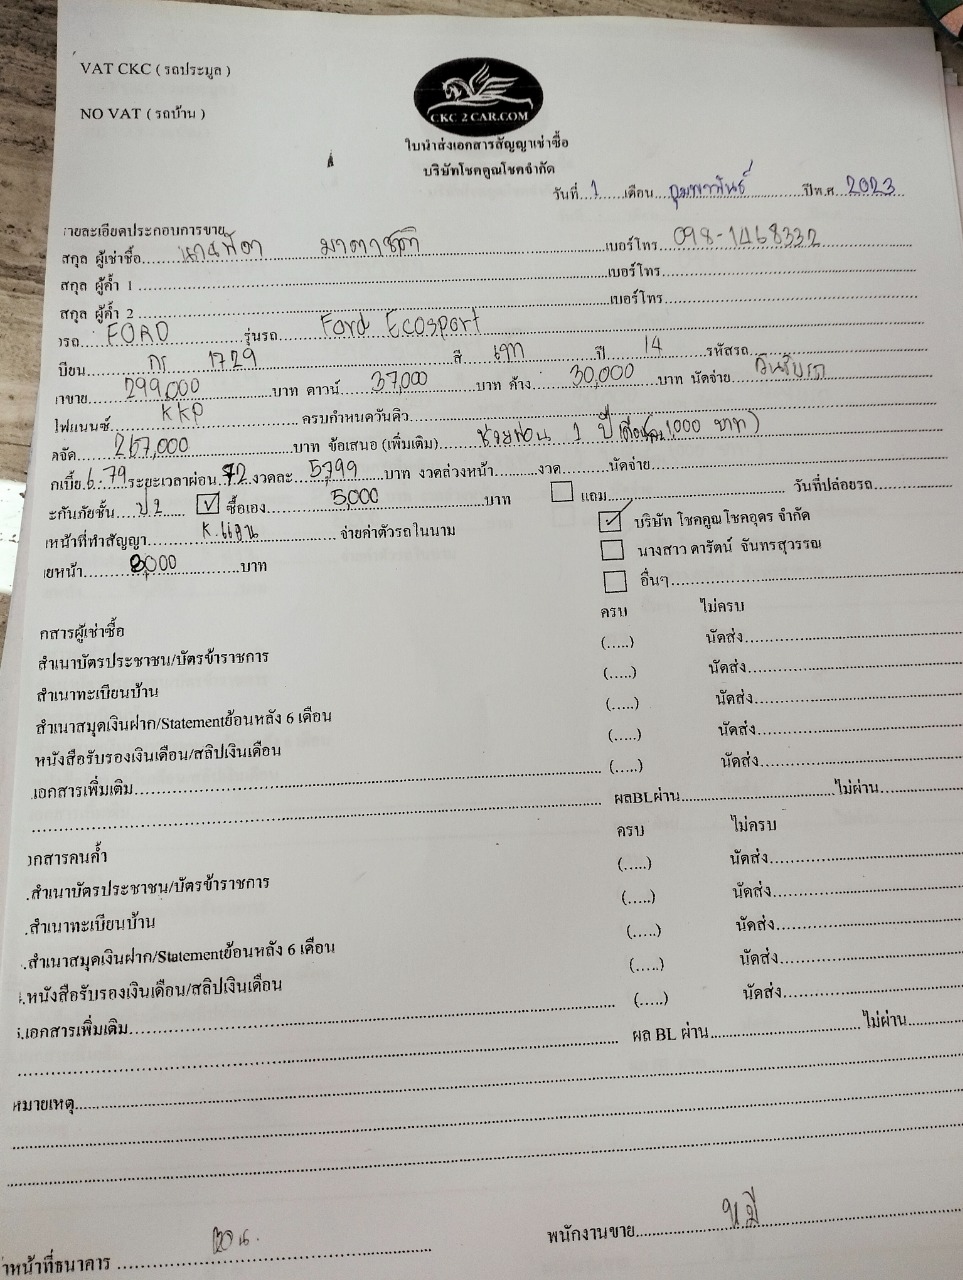 VAT CKC ( รถประมูล )
NO VAT ( รถบ้าน )
CKC 2 CAR.COM
ใบนำส่งเอกสารสัญญาเช่าซื้อ
บริษัทโชคคูณโชคจำกัด
วันที่ 1 เดือน กุมภาพันธ์ ปีพ.ศ. 2023
ายละเอียดประกอบการขาย
สกุล ผู้เช่าซื้อ เบอร์โทร 098-1468332
สกุล ผู้ค้ำ 1 เบอร์โทร
สกุล ผู้ค้ำ 2 เบอร์โทร
รถ FORD รุ่นรถ Ford Ecosport
บียน กร 1729 สี เทา ปี 14 รหัสรถ
าขาย 299,000 บาท ดาวน์ 37,000 บาท ค้าง 30,000 บาท นัดจ่าย วันรับรถ
ไฟแนนซ์ KKP ครบกำหนดวันคิว
ดจัด 267,000 บาท ข้อเสนอ (เพิ่มเติม) ช่วยผ่อน 1 ปี (เดือนละ 1,000 บาท)
กเบี้ย 6.79 ระยะเวลาผ่อน 72 งวดละ 5,799 บาท งวดล่วงหน้า งวด นัดจ่าย
ะกันภัยชั้น ป 2 ☑ ซื้อเอง 5,000 บาท ☐ แถม วันที่ปล่อยรถ
หน้าที่ทำสัญญา จ่ายค่าตัวรถในนาม ☑ บริษัท โชคคูณโชคอุดร จำกัด
☐ นางสาว ดารัตน์ จันทรสุวรรณ
ยหน้า 8,000 บาท ☐ อื่นๆ
กสารผู้เช่าซื้อ ครบ ไม่ครบ
สำเนาบัตรประชาชน/บัตรข้าราชการ (.....) นัดส่ง
สำเนาทะเบียนบ้าน (.....) นัดส่ง
สำเนาสมุดเงินฝาก/Statementย้อนหลัง 6 เดือน (.....) นัดส่ง
หนังสือรับรองเงินเดือน/สลิปเงินเดือน (.....) นัดส่ง
เอกสารเพิ่มเติม (.....) นัดส่ง
ผลBLผ่าน ไม่ผ่าน
อกสารคนค้ำ ครบ ไม่ครบ
.สำเนาบัตรประชาชน/บัตรข้าราชการ (.....) นัดส่ง
.สำเนาทะเบียนบ้าน (.....) นัดส่ง
.สำเนาสมุดเงินฝาก/Statementย้อนหลัง 6 เดือน (.....) นัดส่ง
.หนังสือรับรองเงินเดือน/สลิปเงินเดือน (.....) นัดส่ง
.เอกสารเพิ่มเติม (.....) นัดส่ง
ผล BL ผ่าน ไม่ผ่าน
หมายเหตุ
พนักงานขาย
าหน้าที่ธนาคาร